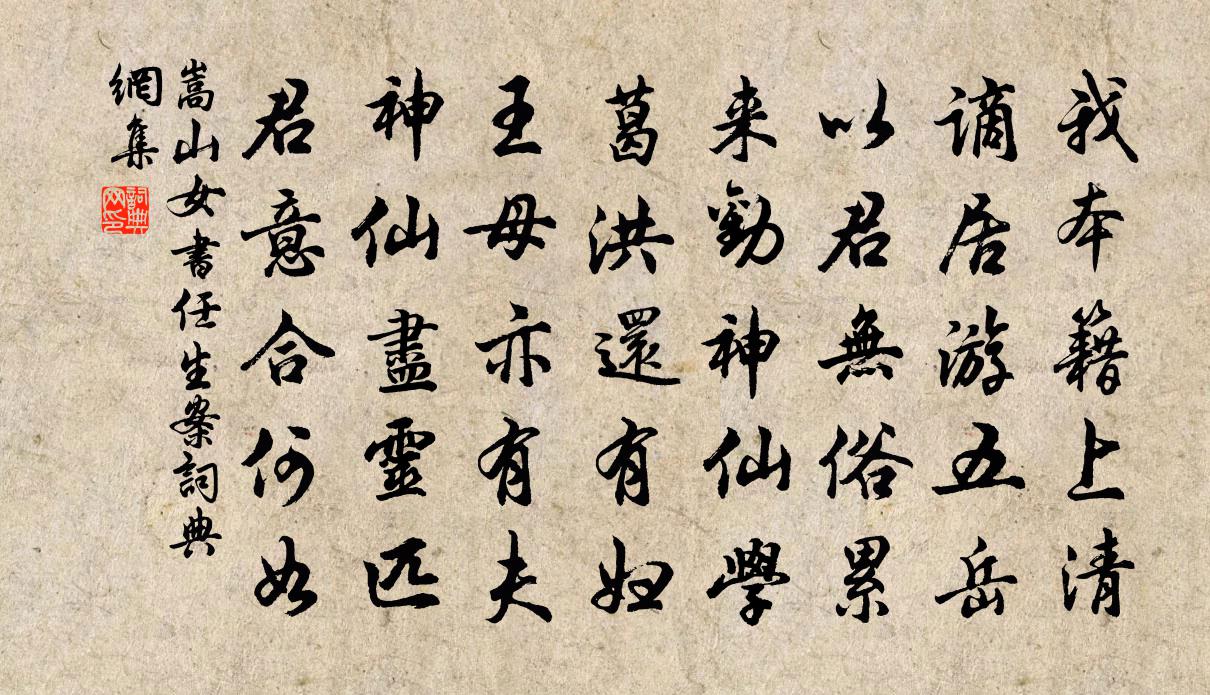 我本籍上清
謫居游五岳
以君無俗累
来勸神仙學
葛洪還有婦
王母亦有夫
神仙盡靈匹
君意合何如
嵩山女書任生案詞典
網集
詞典
网印